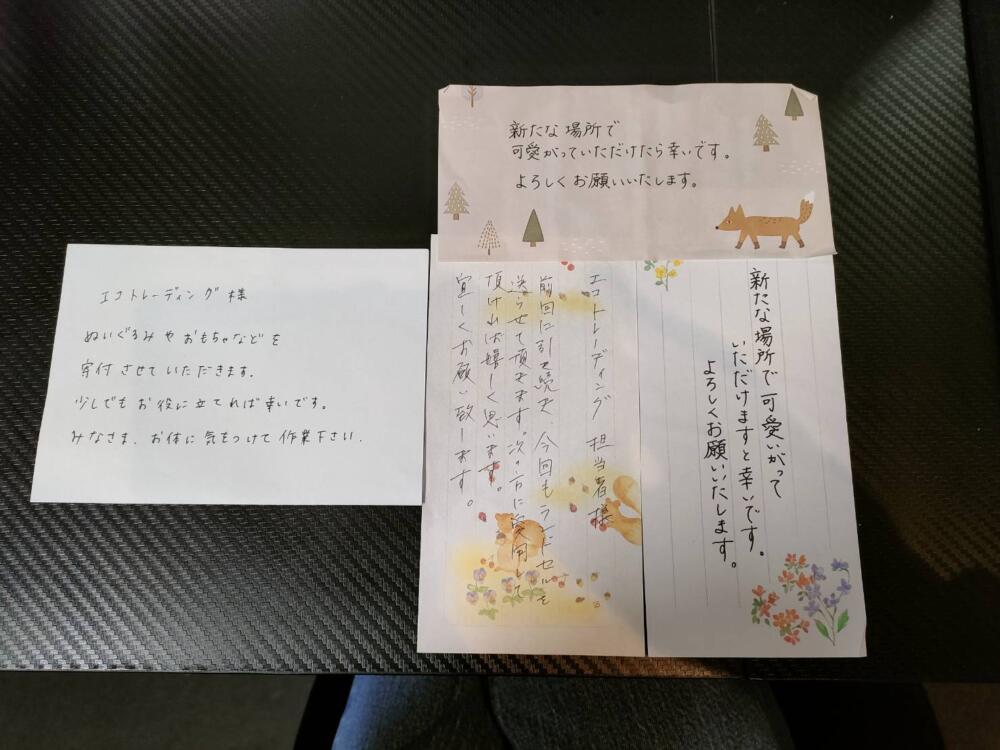 新たな場所で
可愛がっていただけたら幸いです。
よろしくお願いいたします。
エコトレーディング様
ぬいぐるみやおもちゃなどを
寄付させていただきます。
少しでもお役に立てれば幸いです。
みなさま、お体に気をつけて作業下さい.
新たな場所で可愛いがって
いただけますと幸いです。
よろしくお願いいたします。
エコトレーディング 担当者様
前回に引き続き、今回もランドセルを
送らせて頂きます。次の方に愛用して
頂ければ嬉しく思います。
宜しくお願い致します。